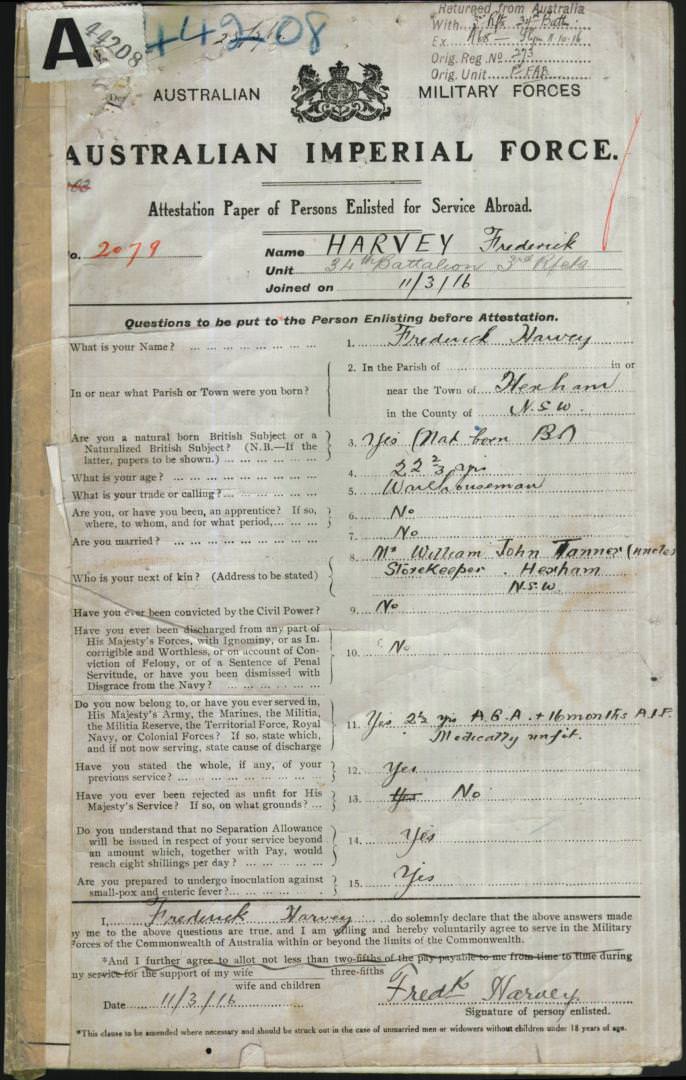 A 44208
442 08
Returned from Australia
With 3rd Rfts 34th Battn
Ex
Orig. Reg. No 273
Orig. Unit
AUSTRALIAN MILITARY FORCES
AUSTRALIAN IMPERIAL FORCE.
Attestation Paper of Persons Enlisted for Service Abroad.
o. 2079
Name HARVEY Frederick
Unit 34th Battalion 3rd Rfcts
Joined on 11/3/16
Questions to be put to the Person Enlisting before Attestation.
What is your Name? ... 1. Frederick Harvey
In or near what Parish or Town were you born? 2. In the Parish of ... in or
near the Town of Hexham
in the County of N.S.W.
Are you a natural born British Subject or a
Naturalized British Subject? (N.B.—If the
latter, papers to be shown.) ... 3. Yes (Nat born BS)
What is your age? ... 4. 22 2/3 yrs
What is your trade or calling? ... 5. Warehouseman
Are you, or have you been, an apprentice? If so,
where, to whom, and for what period, ... 6. No
Are you married? ... 7. No
Who is your next of kin? (Address to be stated) 8. Mr William John Tanner (uncle)
Storekeeper. Hexham
N.S.W.
Have you ever been convicted by the Civil Power? 9. No
Have you ever been discharged from any part of
His Majesty's Forces, with Ignominy, or as In-
corrigible and Worthless, or on account of Con-
viction of Felony, or of a Sentence of Penal
Servitude, or have you been dismissed with
Disgrace from the Navy? ... 10. No
Do you now belong to, or have you ever served in,
His Majesty's Army, the Marines, the Militia,
the Militia Reserve, the Territorial Force, Royal
Navy, or Colonial Forces? If so, state which,
and if not now serving, state cause of discharge 11. Yes 2½ yrs A.G.A. + 16 months A.I.F.
Medically unfit.
Have you stated the whole, if any, of your
previous service? ... 12. Yes
Have you ever been rejected as unfit for His
Majesty's Service? If so, on what grounds? ... 13. Yes No
Do you understand that no Separation Allowance
will be issued in respect of your service beyond
an amount which, together with Pay, would
reach eight shillings per day? ... 14. Yes
Are you prepared to undergo inoculation against
small-pox and enteric fever? ... 15. Yes
I, Frederick Harvey do solemnly declare that the above answers made
y me to the above questions are true, and I am willing and hereby voluntarily agree to serve in the Military
Forces of the Commonwealth of Australia within or beyond the limits of the Commonwealth.
*And I further agree to allot not less than two-fifths of the pay payable to me from time to time during
three-fifths
my service for the support of my wife
wife and children
Date 11/3/16 Fredk Harvey
Signature of person enlisted.
*This clause to be amended where necessary and should be struck out in the case of unmarried men or widowers without children under 18 years of age.